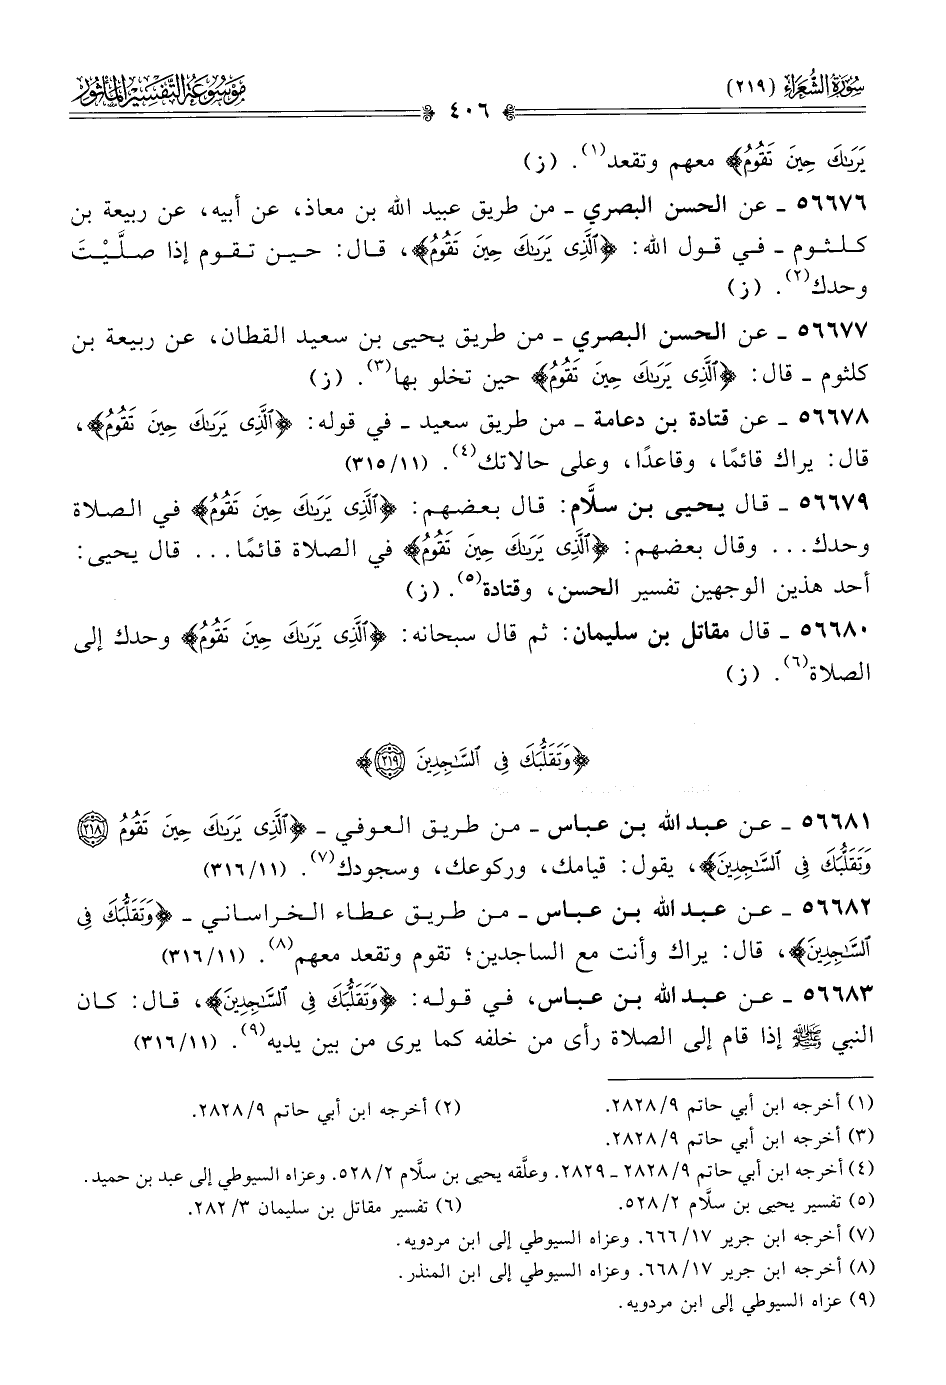 سُورَةُ الشُّعَرَاءِ (٢١٩)
٤٠٦
مَوْسُوعَةُ التَّفْسِيرِ المَأْثُورِ
يَرَىٰكَ حِينَ تَقُومُ﴾ معهم وتقعد(١). (ز)
٥٦٦٧٦ - عن الحسن البصري - من طريق عبيد الله بن معاذ، عن أبيه، عن ربيعة بن
كلثوم - في قول الله: ﴿ٱلَّذِى يَرَىٰكَ حِينَ تَقُومُ﴾، قال: حين تقوم إذا صلَّيْتَ
وحدك(٢). (ز)
٥٦٦٧٧ - عن الحسن البصري - من طريق يحيى بن سعيد القطان، عن ربيعة بن
كلثوم - قال: ﴿ٱلَّذِى يَرَىٰكَ حِينَ تَقُومُ﴾ حين تخلو بها(٣). (ز)
٥٦٦٧٨ - عن قتادة بن دعامة - من طريق سعيد - في قوله: ﴿ٱلَّذِى يَرَىٰكَ حِينَ تَقُومُ﴾،
قال: يراك قائمًا، وقاعدًا، وعلى حالاتك(٤). (٣١٥/١١)
٥٦٦٧٩ - قال يحيى بن سلَّام: قال بعضهم: ﴿ٱلَّذِى يَرَىٰكَ حِينَ تَقُومُ﴾ في الصلاة
وحدك... وقال بعضهم: ﴿ٱلَّذِى يَرَىٰكَ حِينَ تَقُومُ﴾ في الصلاة قائمًا... قال يحيى:
أحد هذين الوجهين تفسير الحسن، وقتادة(٥). (ز)
٥٦٦٨٠ - قال مقاتل بن سليمان: ثم قال سبحانه: ﴿ٱلَّذِى يَرَىٰكَ حِينَ تَقُومُ﴾ وحدك إلى
الصلاة(٦). (ز)
﴿وَتَقَلُّبَكَ فِى ٱلسَّٰجِدِينَ ٢١٩﴾
٥٦٦٨١ - عن عبد الله بن عباس - من طريق العوفي - ﴿ٱلَّذِى يَرَىٰكَ حِينَ تَقُومُ ٢١٨
وَتَقَلُّبَكَ فِى ٱلسَّٰجِدِينَ﴾، يقول: قيامك، وركوعك، وسجودك(٧). (٣١٦/١١)
٥٦٦٨٢ - عن عبد الله بن عباس - من طريق عطاء الخراساني - ﴿وَتَقَلُّبَكَ فِى
ٱلسَّٰجِدِينَ﴾، قال: يراك وأنت مع الساجدين؛ تقوم وتقعد معهم(٨). (٣١٦/١١)
٥٦٦٨٣ - عن عبد الله بن عباس، في قوله: ﴿وَتَقَلُّبَكَ فِى ٱلسَّٰجِدِينَ﴾، قال: كان
النبي ﷺ إذا قام إلى الصلاة رأى من خلفه كما يرى من بين يديه(٩). (٣١٦/١١)
(١) أخرجه ابن أبي حاتم ٢٨٢٨/٩. (٢) أخرجه ابن أبي حاتم ٢٨٢٨/٩.
(٣) أخرجه ابن أبي حاتم ٢٨٢٨/٩.
(٤) أخرجه ابن أبي حاتم ٢٨٢٨/٩ - ٢٨٢٩. وعلَّقه يحيى بن سلَّام ٥٢٨/٢. وعزاه السيوطي إلى عبد بن حميد.
(٥) تفسير يحيى بن سلَّام ٥٢٨/٢. (٦) تفسير مقاتل بن سليمان ٢٨٢/٣.
(٧) أخرجه ابن جرير ٦٦٦/١٧. وعزاه السيوطي إلى ابن مردويه.
(٨) أخرجه ابن جرير ٦٦٨/١٧. وعزاه السيوطي إلى ابن المنذر.
(٩) عزاه السيوطي إلى ابن مردويه.